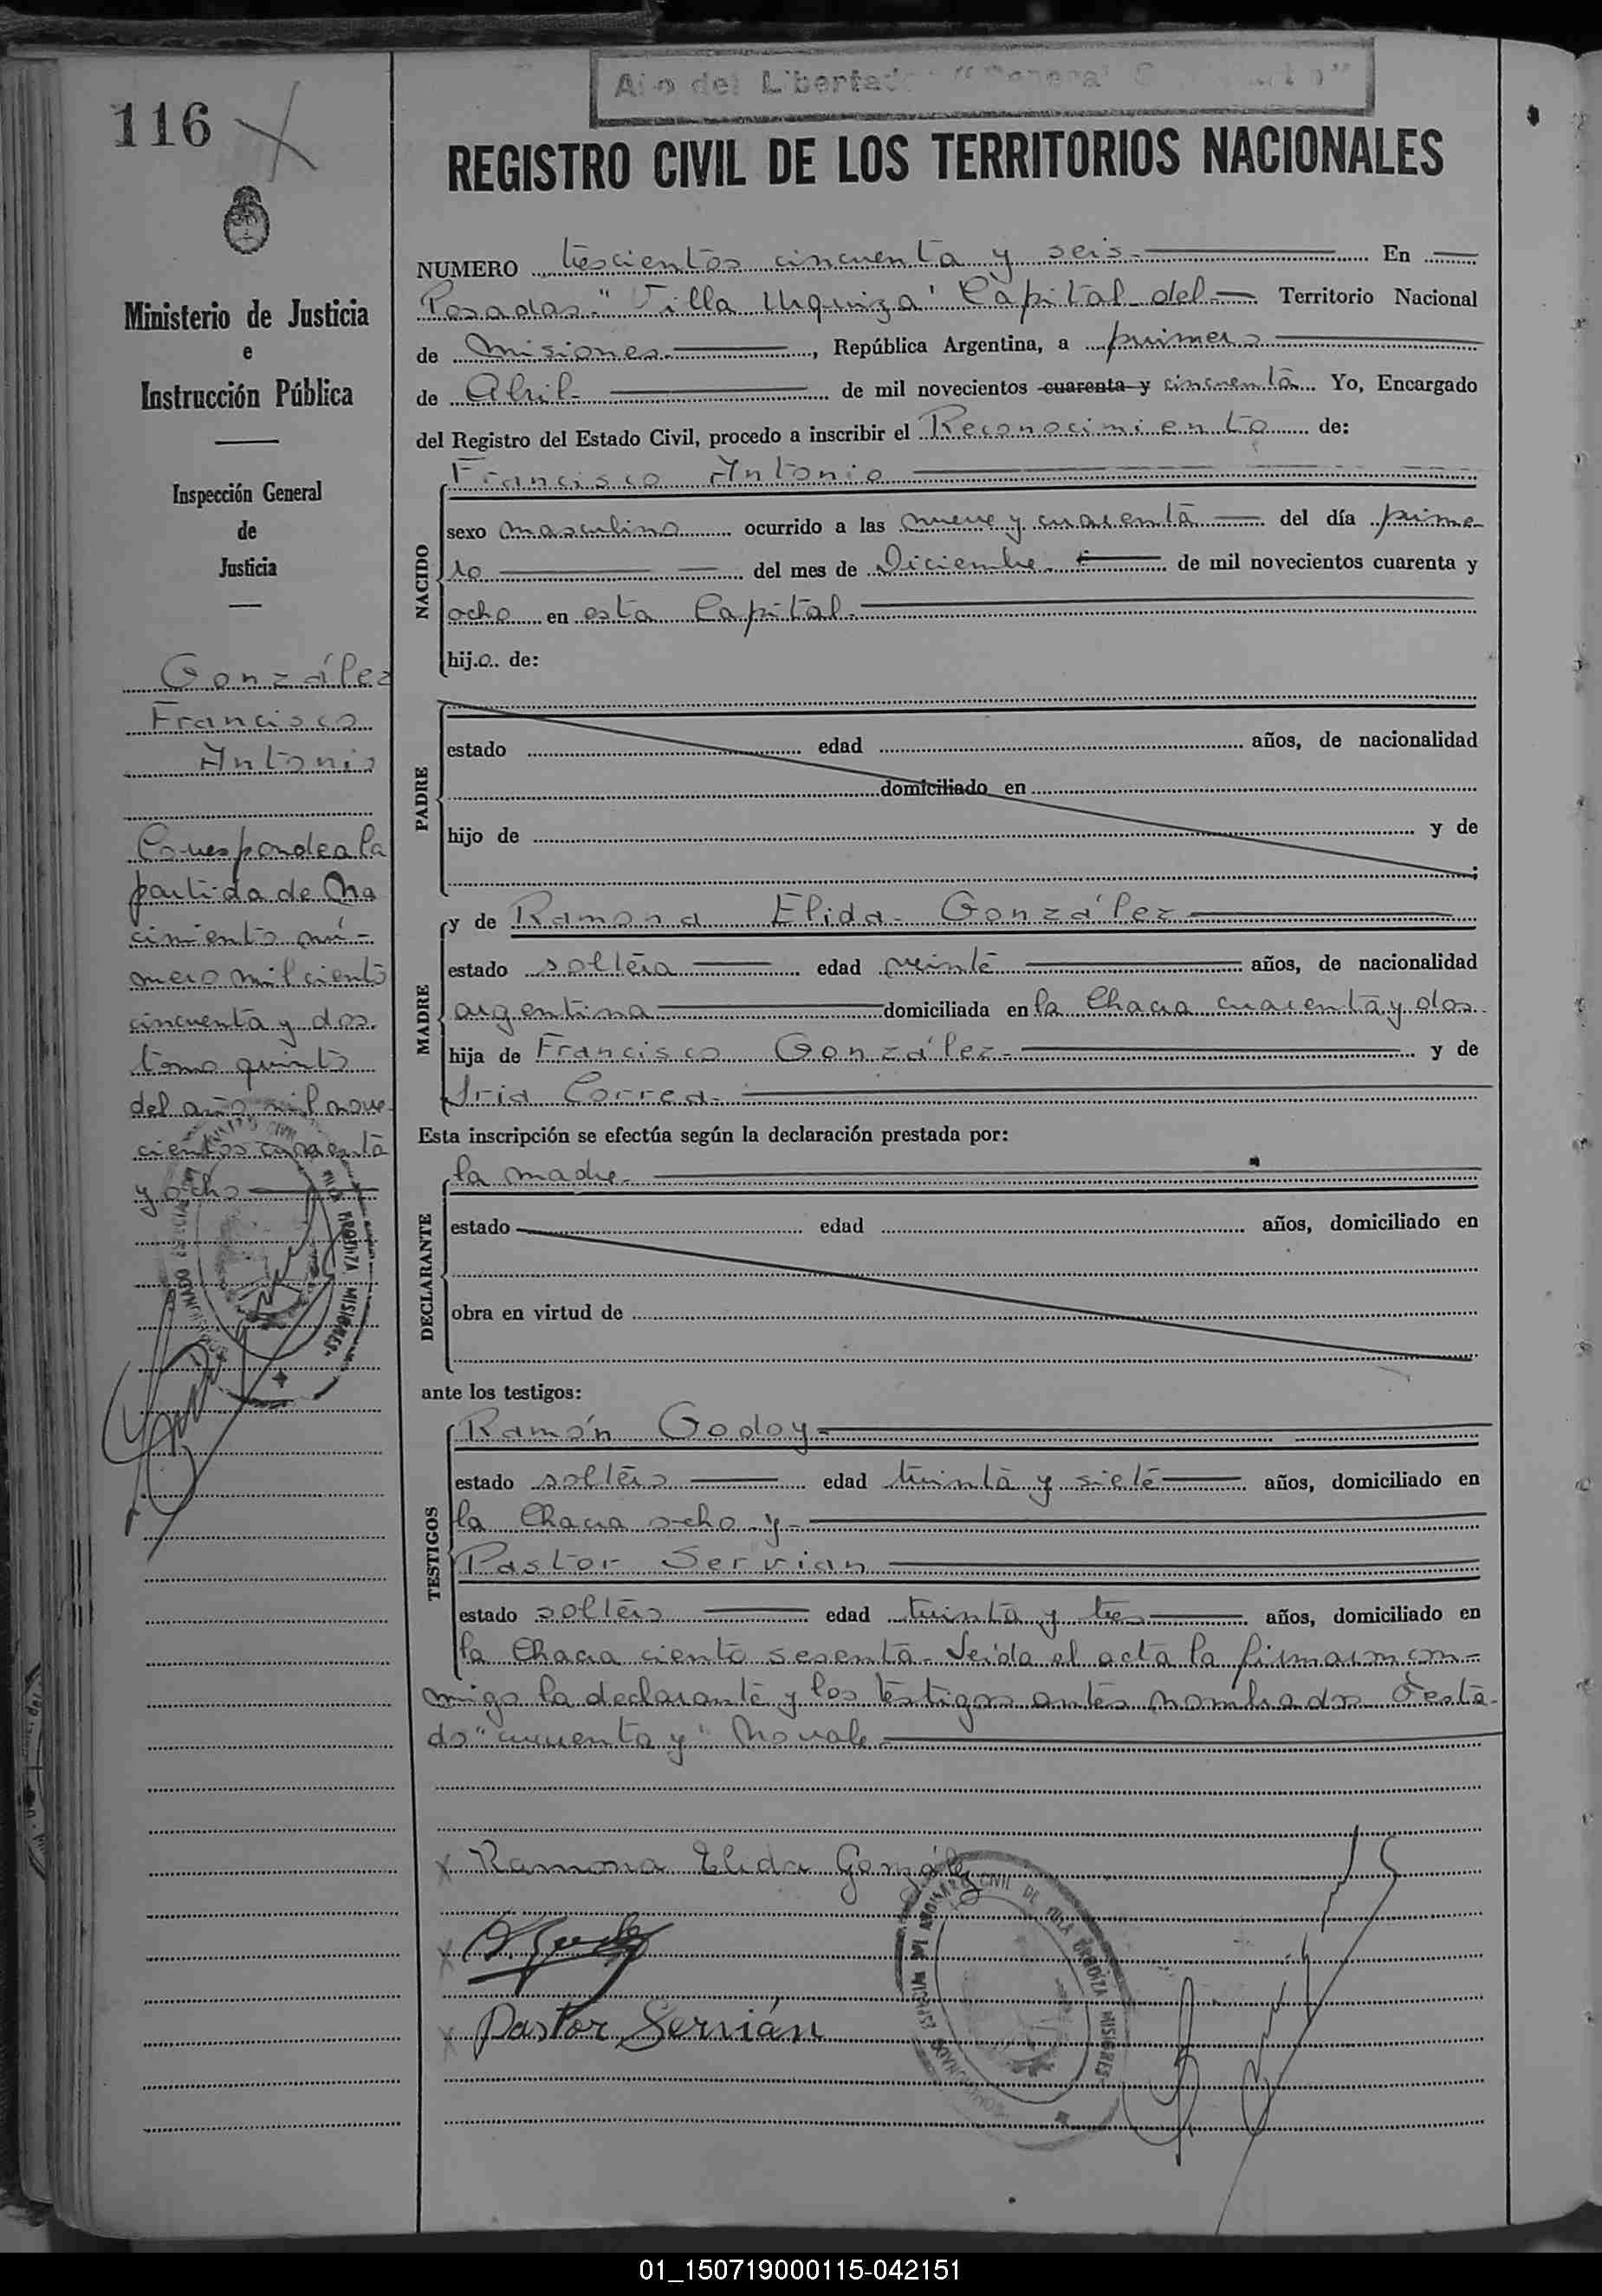 Año del Libertador "General San Martín"
116
REGISTRO CIVIL DE LOS TERRITORIOS NACIONALES
Ministerio de Justicia
e
Instrucción Pública
Inspección General
de
Justicia
González
Francisco
Antonio
Corresponde a la
partida de Na
cimiento nú-
mero mil ciento
cincuenta y dos.
tomo quinto
del año mil nove
cientos cuarenta
y ocho
NUMERO trescientos cincuenta y seis.- En
Posadas "Villa Urquiza" Capital del Territorio Nacional
de Misiones. , República Argentina, a primero
de Abril- de mil novecientos cuarenta y cincuenta Yo, Encargado
del Registro del Estado Civil, procedo a inscribir el Reconocimiento de:
NACIDO
Francisco Antonio
sexo masculino ocurrido a las nueve y cuarenta del día prime-
ro del mes de Diciembre. de mil novecientos cuarenta y
ocho en esta Capital.
hijo de:
PADRE
estado edad años, de nacionalidad
domiciliado en
hijo de y de
;
MADRE
y de Ramona Elida González
estado soltera edad veinte años, de nacionalidad
argentina domiciliada en la Chacra cuarenta y dos.
hija de Francisco González. y de
Iria Correa.
Esta inscripción se efectúa según la declaración prestada por:
DECLARANTE
la madre.
estado edad años, domiciliado en
obra en virtud de
ante los testigos:
TESTIGOS
Ramón Godoy
estado soltero edad treinta y siete años, domiciliado en
la Chacra ocho y-
Pastor Servian
estado soltero edad treinta y tres años, domiciliado en
la Chacra ciento sesenta. Leída el acta la firmaron con-
migo la declarante y los testigos antes nombrados Testa-
do "cuarenta y" No vale.
Ramona Elida González
Pastor Servián
01_150719000115-042151